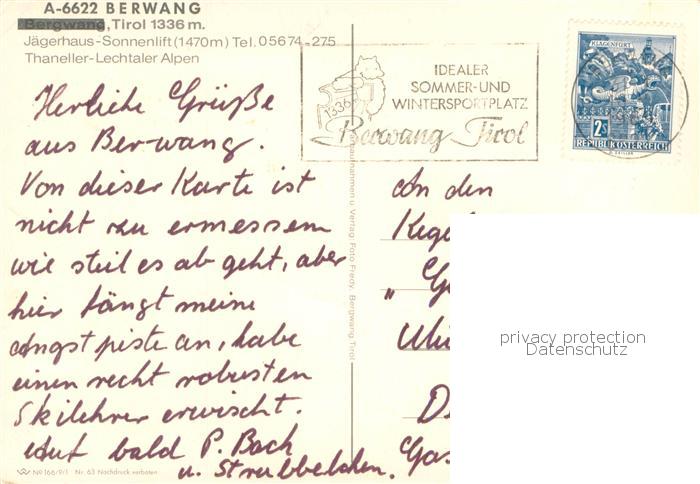 A-6622 BERWANG
Bergwang, Tirol 1336 m.
Jägerhaus-Sonnenlift (1470m) Tel. 05674-275
Thaneller-Lechtaler Alpen
IDEALER
SOMMER-UND
WINTERSPORTPLATZ
1336
Berwang Tirol
KLAGENFURT
2s
REPUBLIK ÖSTERREICH
Herliche Grüße
aus Berwang.
Von dieser Karte ist
nicht zu ermessen
wie steil es ab geht, aber
hier fängt meine
Angst piste an, habe
einen recht robusten
Skilehrer erwischt.
Auf bald P. Bach
u. Strubbelchen.
An den
Kegel
"G
D
Gas
privacy protection
Datenschutz
aufnahmen u. Verlag: Foto Fredy, Bergwang, Tirol
No 166/9/1 Nr. 63 Nachdruck verboten